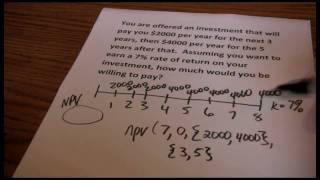 You are offered an investment that will
pay you $2000 per year for the next 3
years, then $4000 per year for the 5
years after that. Assuming you want to
earn a 7% rate of return on your
investment, how much would you be
willing to pay?
2000 2000 2000 4000 4000 4000 4000 4000
NPV
K=7%
1 2 3 4 5 6 7 8
npv (7, 0, {2000, 4000},
{3,5}